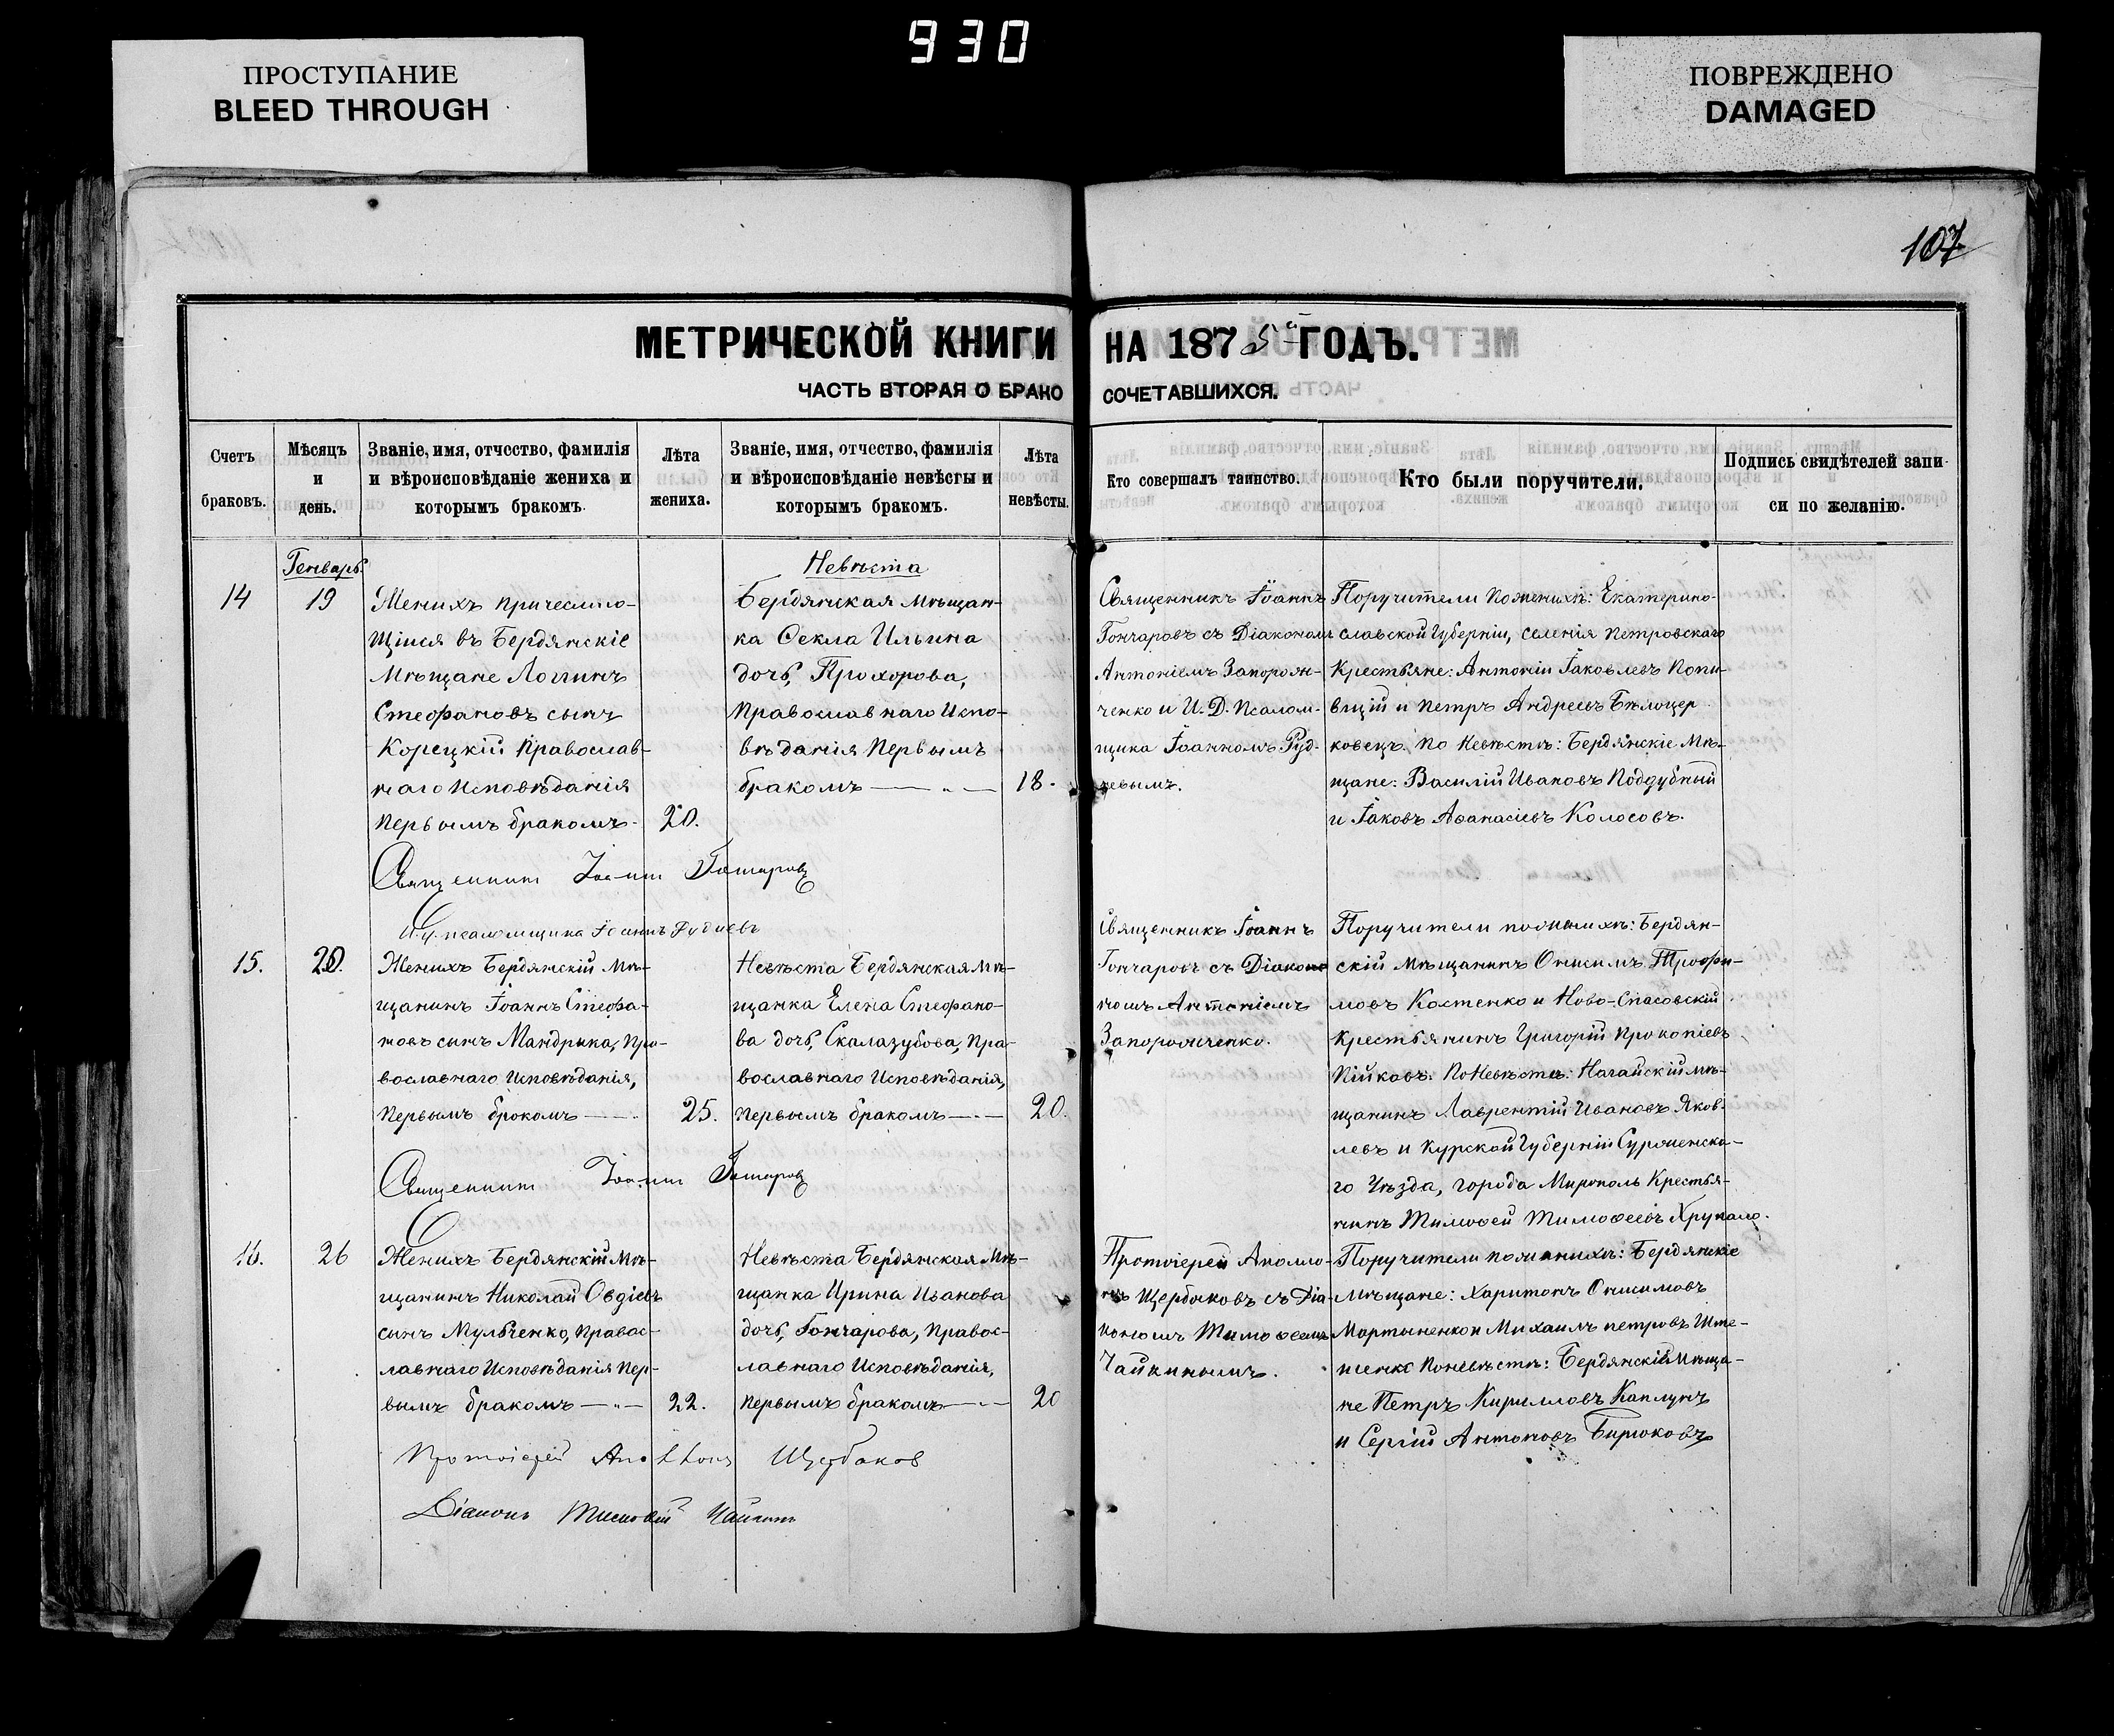 930
ПРОСТУПАНИЕ
BLEED THROUGH
ПОВРЕЖДЕНО
DAMAGED
107
МЕТРИЧЕСКОЙ КНИГИ НА 1875 ГОДЪ.
ЧАСТЬ ВТОРАЯ О БРАКОСОЧЕТАВШИХСЯ.
Счетъ браковъ.
Мѣсяцъ и день.
Званіе, имя, отчество, фамилія
и вѣроисповѣданіе жениха и
которымъ бракомъ.
Лѣта жениха.
Званіе, имя, отчество, фамилія
и вѣроисповѣданіе невѣсты и
которымъ бракомъ.
Лѣта невѣсты.
Кто совершалъ таинство.
Кто были поручители.
Подпись свидѣтелей запи-
си по желанію.
Генварь
14
19
Женихъ причесляю-
щійся въ Бердянскіе
Мѣщане Логгинъ
Стефановъ сынъ
Корецкій Православ-
наго Исповѣданія
первымъ бракомъ.
20.
Невѣста
Бердянская мѣщан-
ка Ѳекла Ильина
дочь, Прохорова,
Православнаго Испо-
вѣданія Первымъ
бракомъ — „ —
18.
Священникъ Іоаннъ
Гончаровъ съ Діакономъ
Антоніемъ Запорож-
ченко и И. Д. Псалом-
щика Іоанномъ Руд-
невымъ.
Поручители по женихѣ: Екатерино-
славской Губерніи, селенія Петровскаго
Крестьяне: Антоній Іаковлевъ Копи-
вцій и Петръ Андреевъ Бѣлоцер
ковецъ. По Невѣстѣ: Бердянскіе Мѣ-
щане: Василій Ивановъ Поддубный
и Іаковъ Аѳанасіевъ Колосовъ.
Священникъ Іоаннъ Гончаровъ
И. д. псаломщика Іоаннъ Рудневъ
15.
20.
Женихъ Бердянскій Мѣ-
щанинъ Іоаннъ Стефа-
новъ сынъ Мандрыка, Пра-
вославнаго Исповѣданія,
Первымъ брокомъ —
25.
Невѣста Бердянская мѣ-
щанка Елена Стефано-
ва дочь, Скалазубова, Пра-
вославнаго Исповѣданія,
первымъ бракомъ —
20.
Священникъ Іоаннъ
Гончаровъ съ Діако
номъ Антоніемъ
Запорожченко.
Поручители по женихѣ: Бердян-
скій мѣщанинъ Онисимъ Трофи-
мовъ Костенко и Ново-Спасовскій
крестьянинъ Григорій Прокопіевъ
Пійковъ. По Невѣстѣ: Нагайскій мѣ-
щанинъ Лаврентій Ивановъ Яков-
левъ и Курской Губерніи Суроженска-
го Уѣзда, города Мирополь Крестья-
нинъ Тимоѳей Тимоѳеевъ Хрупало.
Священникъ Іоаннъ Гончаровъ
16.
26
Женихъ Бердянскій Мѣ-
щанинъ Николай Овдіевъ
сынъ Мульченко, Правос-
лавнаго Исповѣданія Пер-
вымъ бракомъ — „ —
22.
Невѣста Бердянская Мѣ-
щанка Ирина Иванова
дочь, Гончарова, Правос-
лавнаго Исповѣданія,
первымъ бракомъ —
20
Протоіерей Аполло-
нъ Щербаковъ съ Діа-
кономъ Тимоѳеемъ
Чайкинымъ.
Поручители по женихѣ: Бердянскіе
Мѣщане: Харитонъ Онисимовъ
Мартыненко и Михаилъ Петровъ Ште-
пенко По невѣстѣ: Бердянскій Мѣща-
не Петръ Кирилловъ Каплунъ
и Сергій Антоновъ Бирюковъ
Протоіерей Аполлонъ Щербаковъ
Діаконъ Тимоѳей Чайкинъ